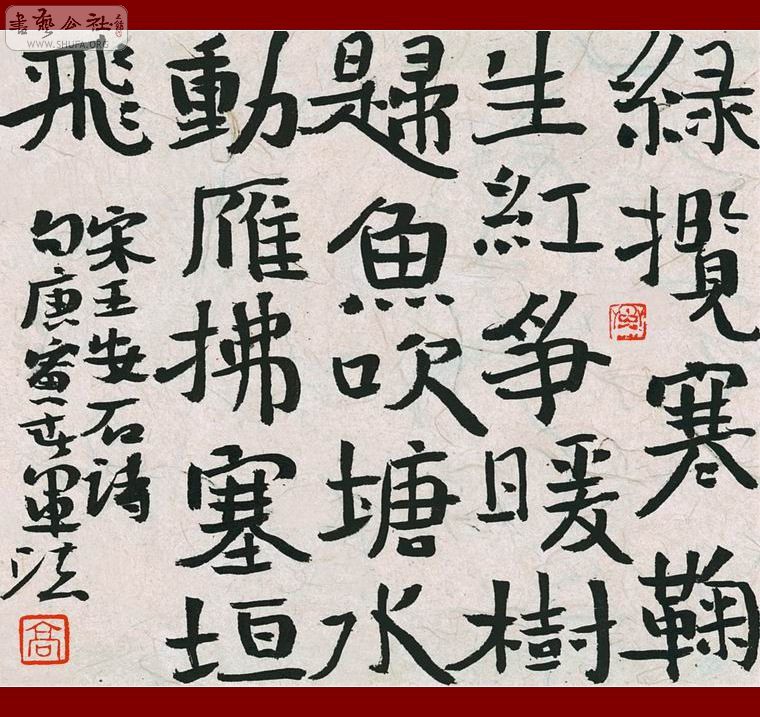 綠攬寒鞠
生紅爭暖樹
歸魚吹塘水
動雁拂塞垣
飛
宋王安石詩
句庚寅春軍法
高
書藝公社
WWW.SHUFA.ORG